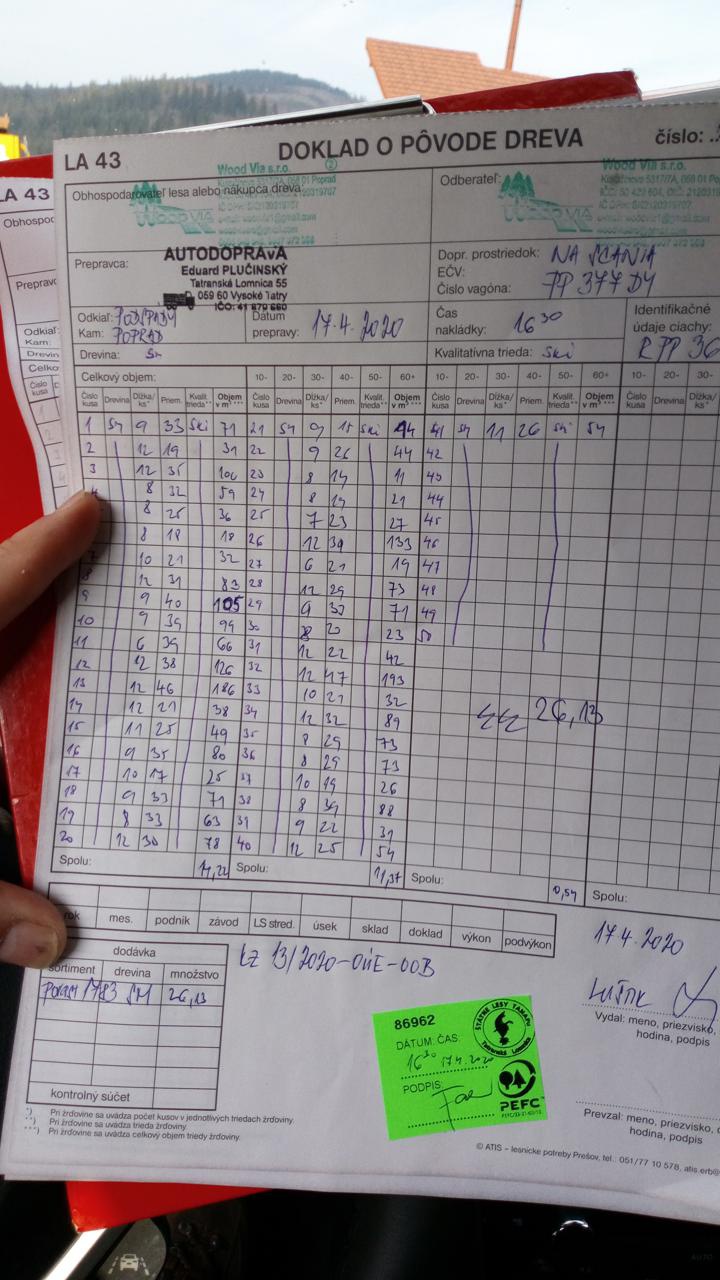 LA 43
DOKLAD O PÔVODE DREVA
číslo:
LA 43
Wood Via s.r.o.
Wood Via s.r.o.
Obhospodarovateľ lesa alebo nákupca dreva:
Odberateľ:
WOOD VIA
WOOD VIA
Prepravca:
AUTODOPRAVA
Eduard PLUČINSKÝ
Tatranská Lomnica 55
059 60 Vysoké Tatry
IČO: 41 879 660
Dopr. prostriedok: NA SCANIA
EČV:
Číslo vagóna: PP 377 DY
Odkiaľ: PODSPADY
Kam: POPRAD
Dátum prepravy: 17.4.2020
Čas nakládky: 16 30
Identifikačné údaje ciachy:
RPP 36
Drevina: Sm
Kvalitatívna trieda:
Celkový objem: 10- 20- 30- 40- 50- 60+ 10- 20- 30- 40- 50- 60+ 10- 20- 30-
Číslo kusa Drevina Dĺžka/ks* Priem. Kvalit. trieda** Objem v m³*** Číslo kusa Drevina Dĺžka/ks* Priem. Kvalit. trieda** Objem v m³*** Číslo kusa Drevina Dĺžka/ks* Priem. Kvalit. trieda** Objem v m³*** Číslo kusa Drevina Dĺžka/ks*
1 9 33 71 21 9 41 11 26 54
2 12 19 31 22 9 26 44 42
3 12 35 106 23 8 14 11 43
8 32 59 24 8 19 21 44
8 25 36 25 7 23 27 45
8 18 18 26 12 39 133 46
7 10 21 32 27 6 21 19 47
8 12 31 83 28 12 29 73 48
9 9 40 105 29 9 33 71 49
10 9 39 99 30 8 20 23 50
11 6 39 66 31 12 22 42
12 12 38 126 32 12 47 193
13 12 46 186 33 10 21 32
14 12 21 38 34 12 32 89
15 11 25 49 35 8 29 73
16 9 35 80 36 8 29 73
17 10 17 25 37 10 19 26
18 9 33 71 38 8 39 88
19 8 33 63 39 9 22 31
20 12 30 78 40 12 25 54
26,13
Spolu: 14,22 Spolu: 11,37 Spolu: 0,54 Spolu:
rok mes. podnik závod LS stred. úsek sklad doklad výkon podvýkon
dodávka
sortiment drevina množstvo
1783 SM 26,13
kontrolný súčet
17.4.2020
Vydal: meno, priezvisko,
hodina, podpis
86962
DÁTUM: ČAS:
16 30 17.4.2020
PODPIS:
ŠTÁTNE LESY TANAPu
Tatranská Lomnica
PEFC
Prevzal: meno, priezvisko,
hodina, podpis
*) Pri žrďovine sa uvádza počet kusov v jednotlivých triedach žrďoviny.
**) Pri žrďovine sa uvádza trieda žrďoviny.
***) Pri žrďovine sa uvádza celkový objem triedy žrďoviny.
© ATIS – lesnícke potreby Prešov, tel.: 051/77 10 578, atis.erb@